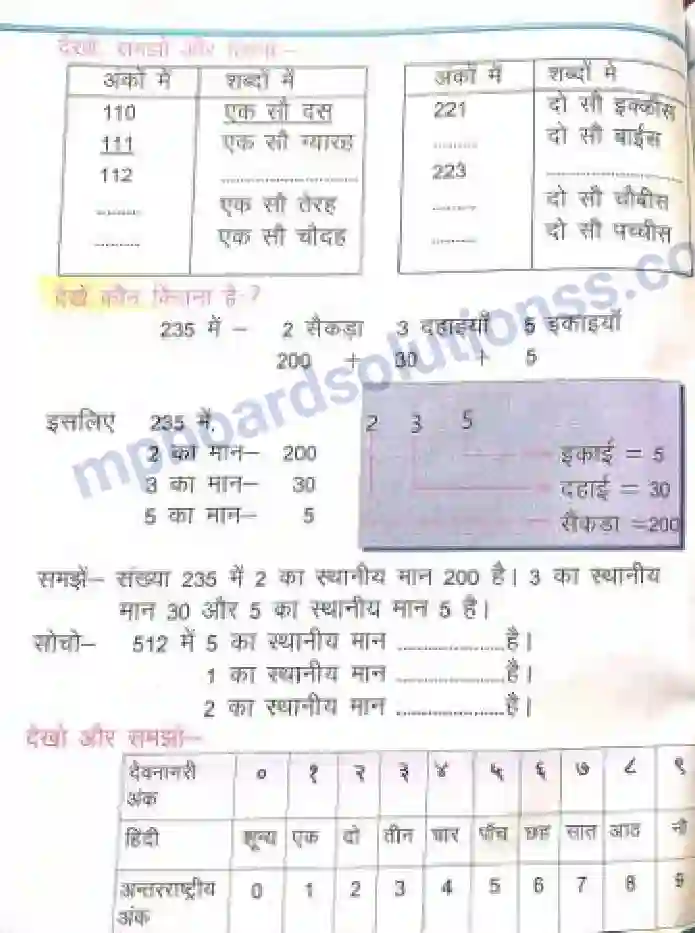 देखो, समझो और लिखो–
अंकों में शब्दों में
110 एक सौ दस
111 एक सौ ग्यारह
112 ..............................
........ एक सौ तेरह
........ एक सौ चौदह
अंकों में शब्दों में
221 दो सौ इक्कीस
........ दो सौ बाईस
223 ..............................
........ दो सौ चौबीस
........ दो सौ पच्चीस
देखें कौन कितना है-?
235 में – 2 सैकड़ा 3 दहाइयाँ 5 इकाइयाँ
200 + 30 + 5
इसलिए 235 में,
2 का मान– 200
3 का मान– 30
5 का मान– 5
2 3 5
इकाई = 5
दहाई = 30
सैकडा =200
समझें– संख्या 235 में 2 का स्थानीय मान 200 है। 3 का स्थानीय
मान 30 और 5 का स्थानीय मान 5 है।
सोचो– 512 में 5 का स्थानीय मान ....................है।
1 का स्थानीय मान ....................है।
2 का स्थानीय मान ....................है।
देखो और समझो–
देवनागरी अंक ० १ २ ३ ४ ५ ६ ७ ८ ९
हिंदी शून्य एक दो तीन चार पाँच छह सात आठ नौ
अन्तरराष्ट्रीय अंक 0 1 2 3 4 5 6 7 8 9
mpboardsolutionss.co